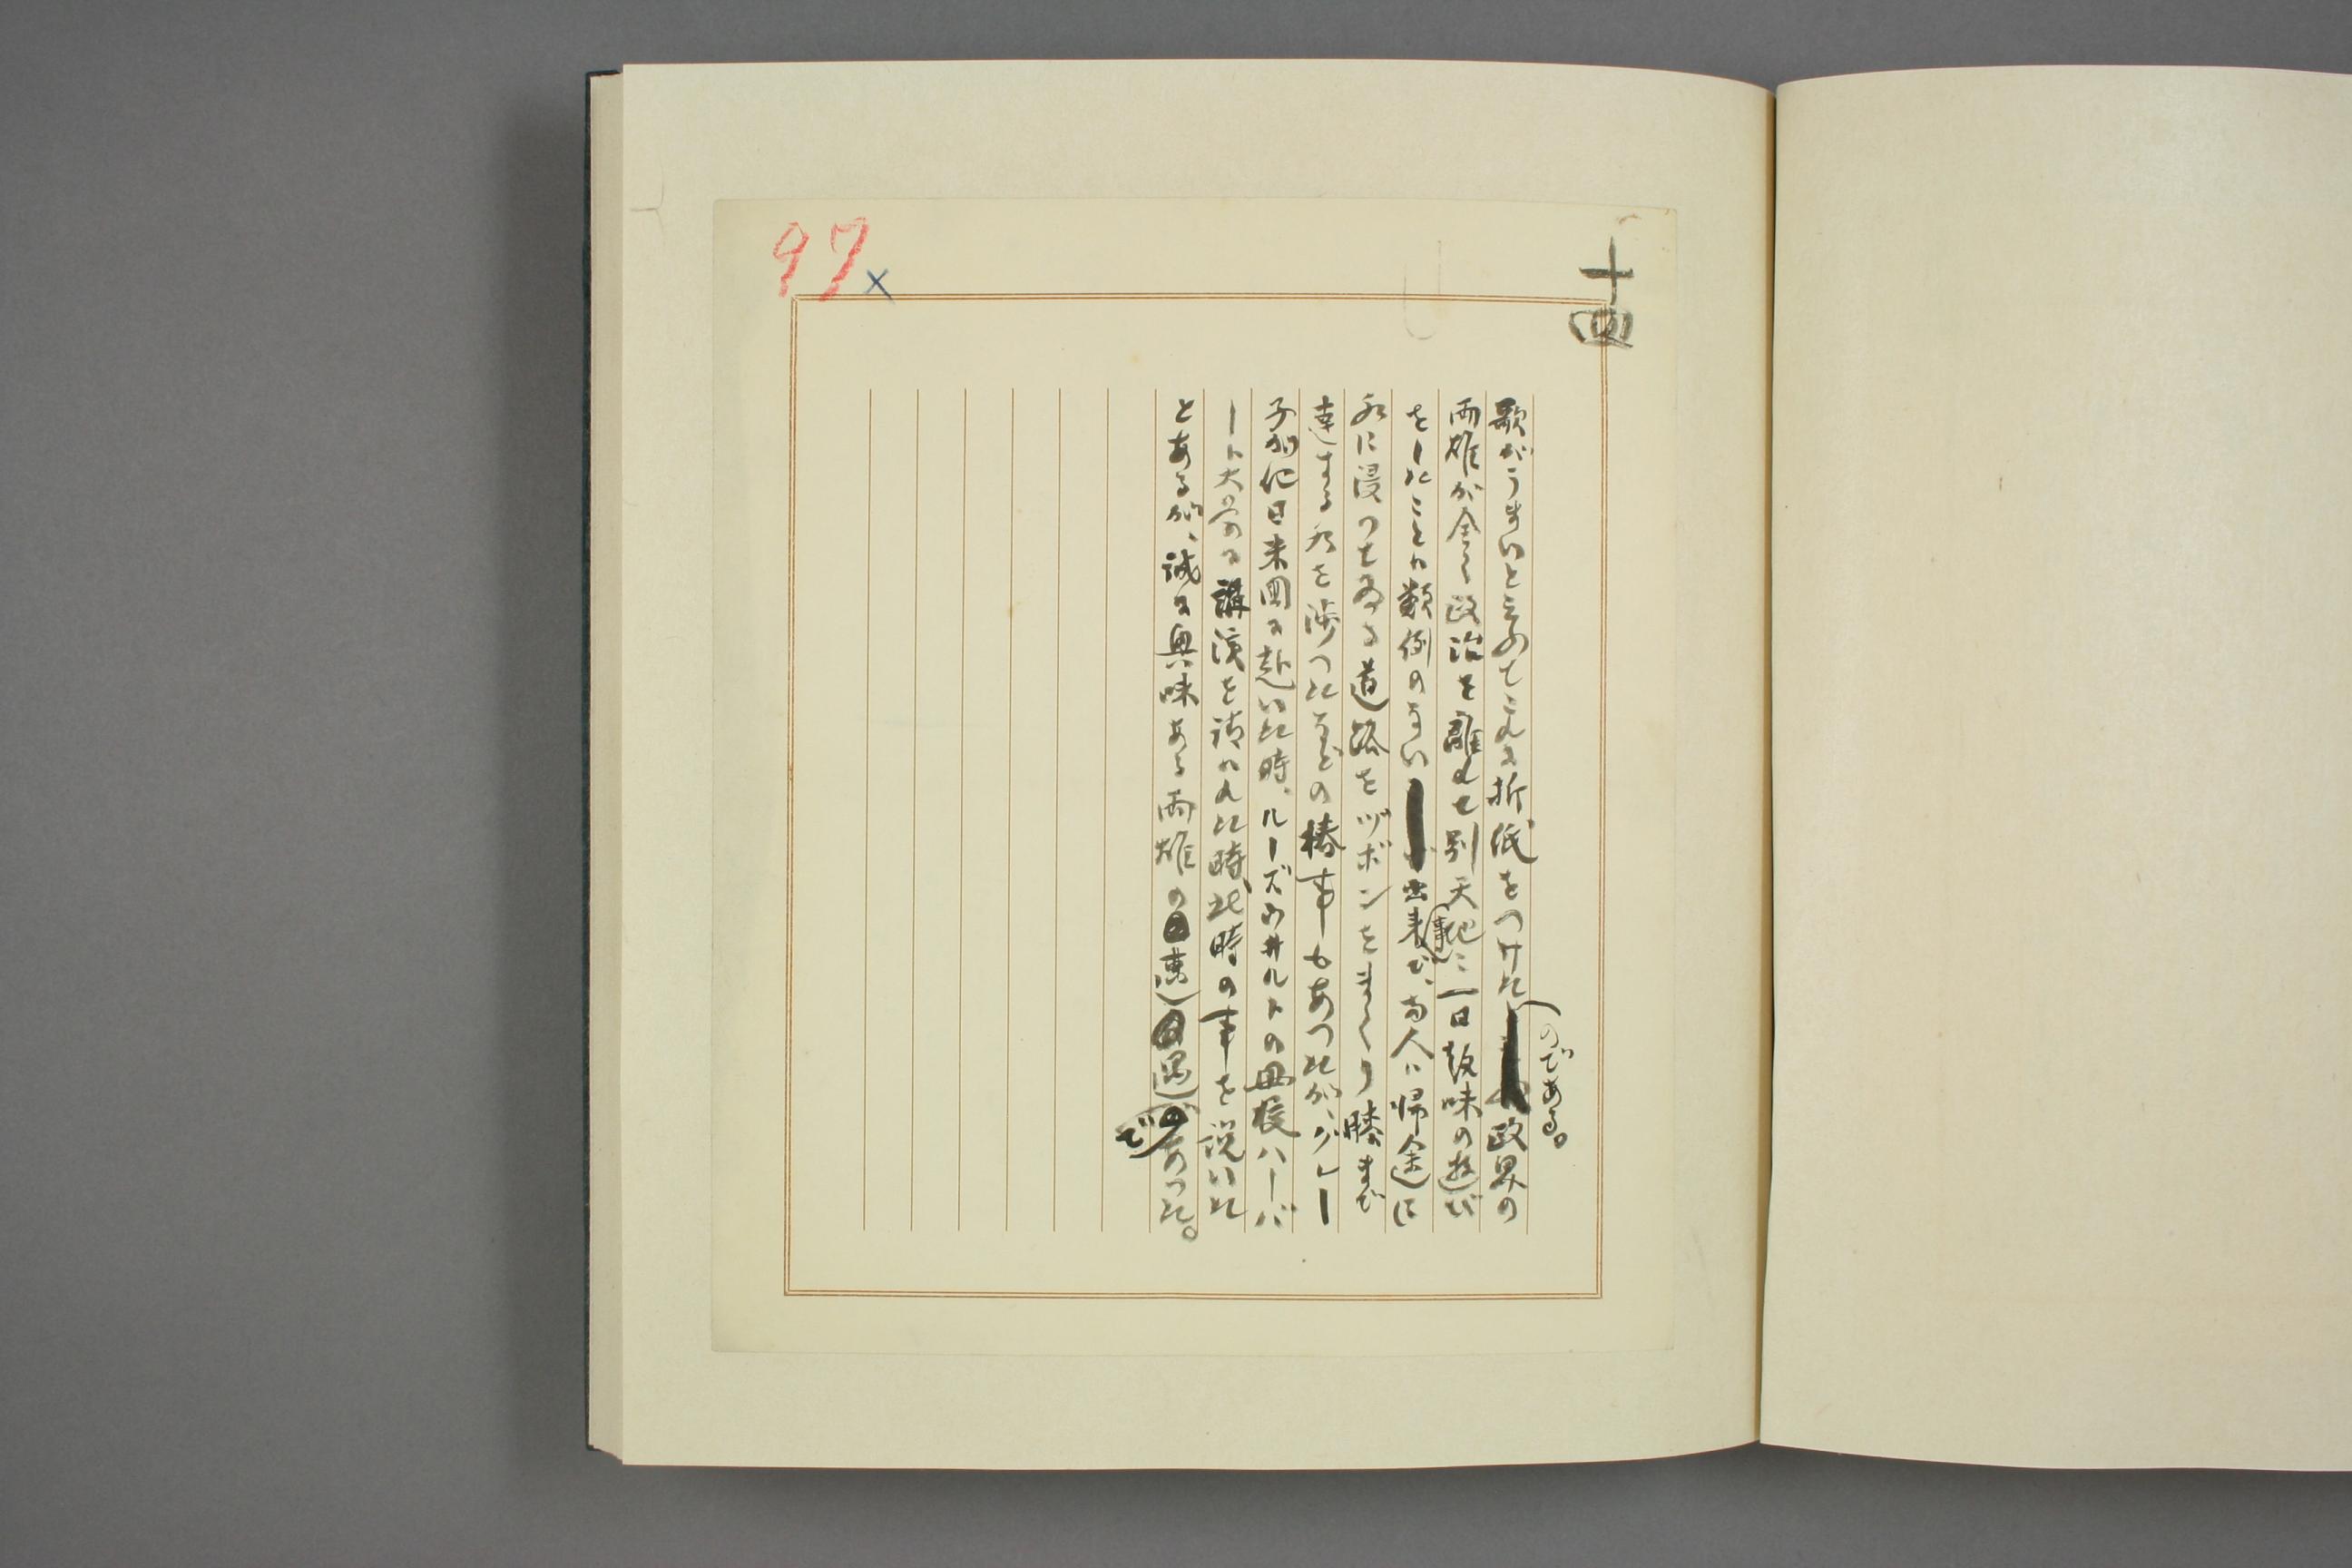 十四
97
×
歌がうまいと云ふてこれに折紙をつけたのである。政界の
両雄が全く政治を離れて別天地に一日韻味の遊び
をしたことは類例のない出来事で、両人は帰途に
水に浸つてゐる道路をヅボンをまくり膝まで
達する水を渉つたなどの椿事もあつたが、グレー
子が他日米国に赴いた時、ルーズヴ井ルトの母校ハーバ
ート大学に講演を請はれた時、此時の事を説いた
とあるが、誠に興味ある両雄の遭遇であつた。